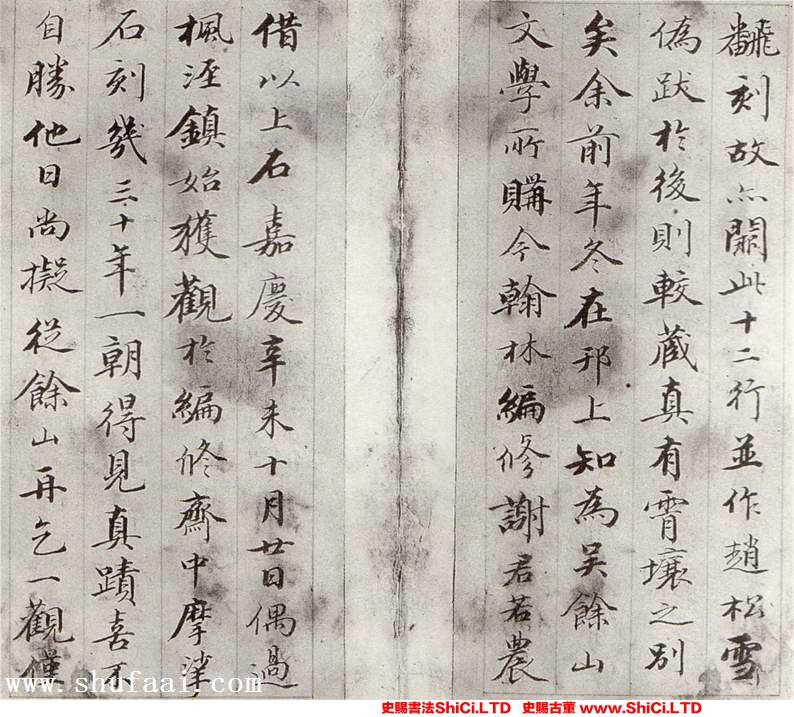 飜刻故亦闕此十二行並作趙松雪
偽跋於後則較蔵真有霄壤之別
矣余前年冬在邗上知為吴餘山
文學所購今翰林編修謝君若農
借以上石嘉慶辛未十月廿日偶過
楓涇鎮始獲觀於編修齋中摩挲
石刻幾三十年一朝得見真蹟喜不
自勝他日尚擬從餘山再乞一觀僅
www.shufaai.com
史賜書法ShiCi.LTD 史賜古董 www.ShiCi.LTD